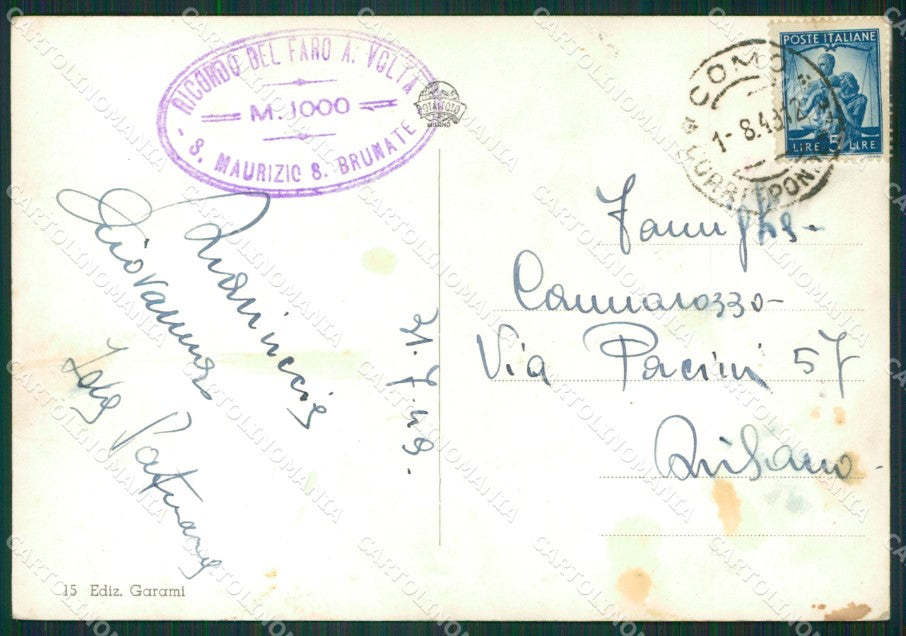 RICORDO DEL FARO A. VOLTA
M. 1000
S. MAURIZIO S. BRUNATE
ROTALFOTO
MILANO
POSTE ITALIANE
LIRE 5 LIRE
COMO
1-8.49 12
CORRISPON
Giovanna
31.7.49.
Famiglia
Cannarozzo
Via Pacini 57
Milano
15 Ediz. Garami
CARTOLINOMANIA